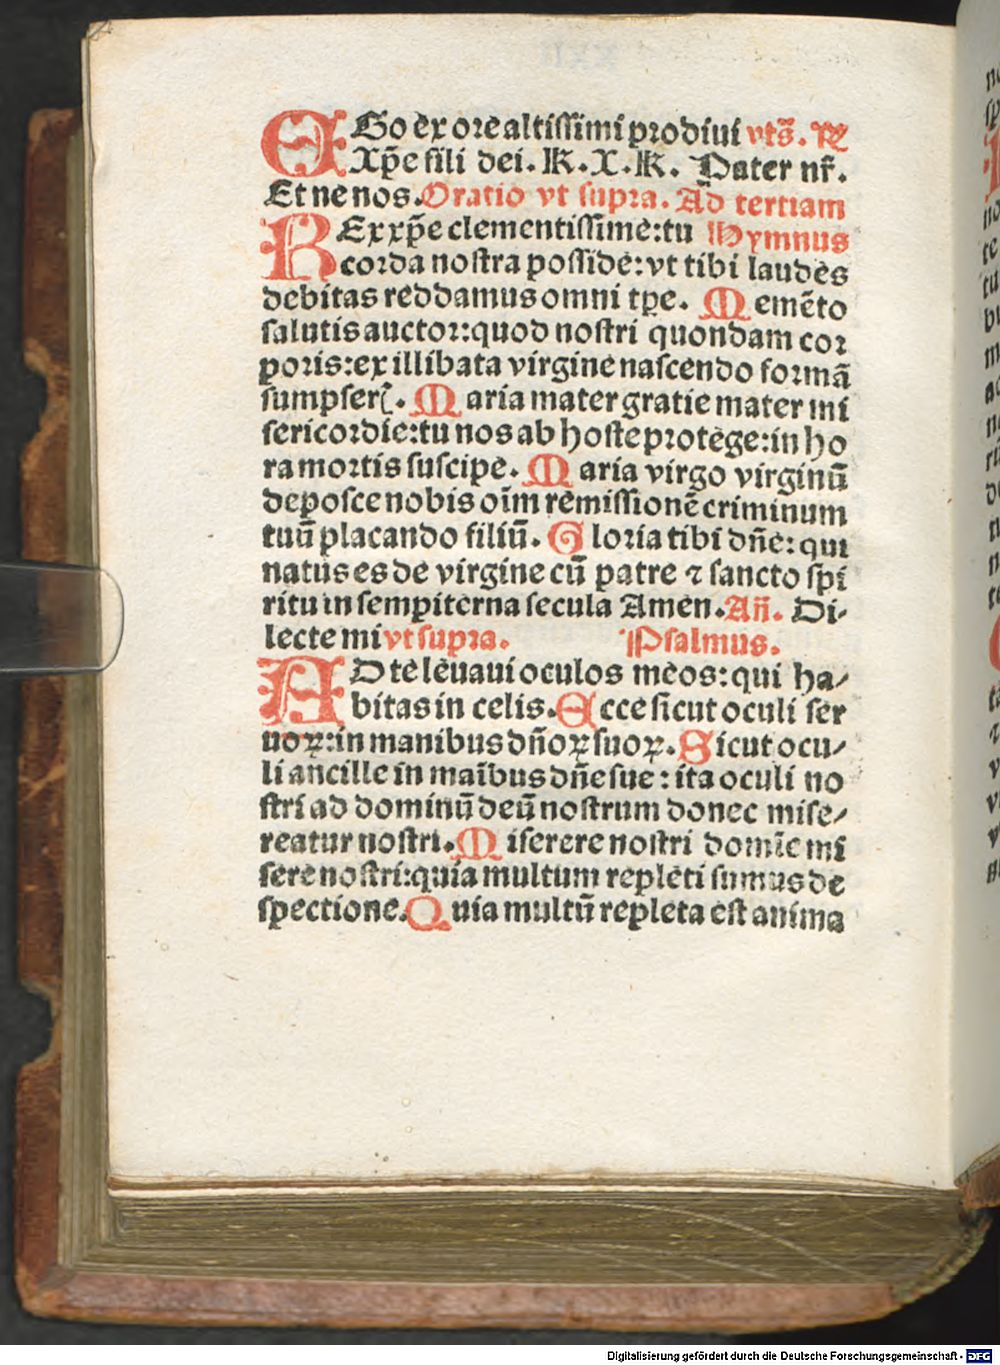 EGo ex ore altissimi prodiui vts̄. ℟
Xp̄e fili dei. K. X. K. Pater nr̄.
Et ne nos. Oratio vt supra. Ad tertiam
REx xp̄e clementissime: tu Hymnus
corda nostra posside: vt tibi laudes
debitas reddamus omni tp̄e. Memēto
salutis auctor: quod nostri quondam cor
poris: ex illibata virgine nascendo formā
sumpser̄. Maria mater gratie mater mi
sericordie: tu nos ab hoste protege: in ho
ra mortis suscipe. Maria virgo virginū
deposce nobis oīm remissionē criminum
tuū placando filiū. Gloria tibi dn̄e: qui
natus es de virgine cū patre ⁊ sancto spi
ritu in sempiterna secula Amen. Añ. Di-
lecte mi vt supra. Psalmus.
AD te leuaui oculos meos: qui ha-
bitas in celis. Ecce sicut oculi ser
uoꝝ: in manibus dn̄oꝝ suoꝝ. Sicut ocu-
li ancille in maībus dn̄e sue: ita oculi no
stri ad dominū deū nostrum donec mise-
reatur nostri. Miserere nostri domīe mi
sere nostri: quia multum repleti sumus de
spectione. Quia multū repleta est anima
Digitalisierung gefördert durch die Deutsche Forschungsgemeinschaft - DFG